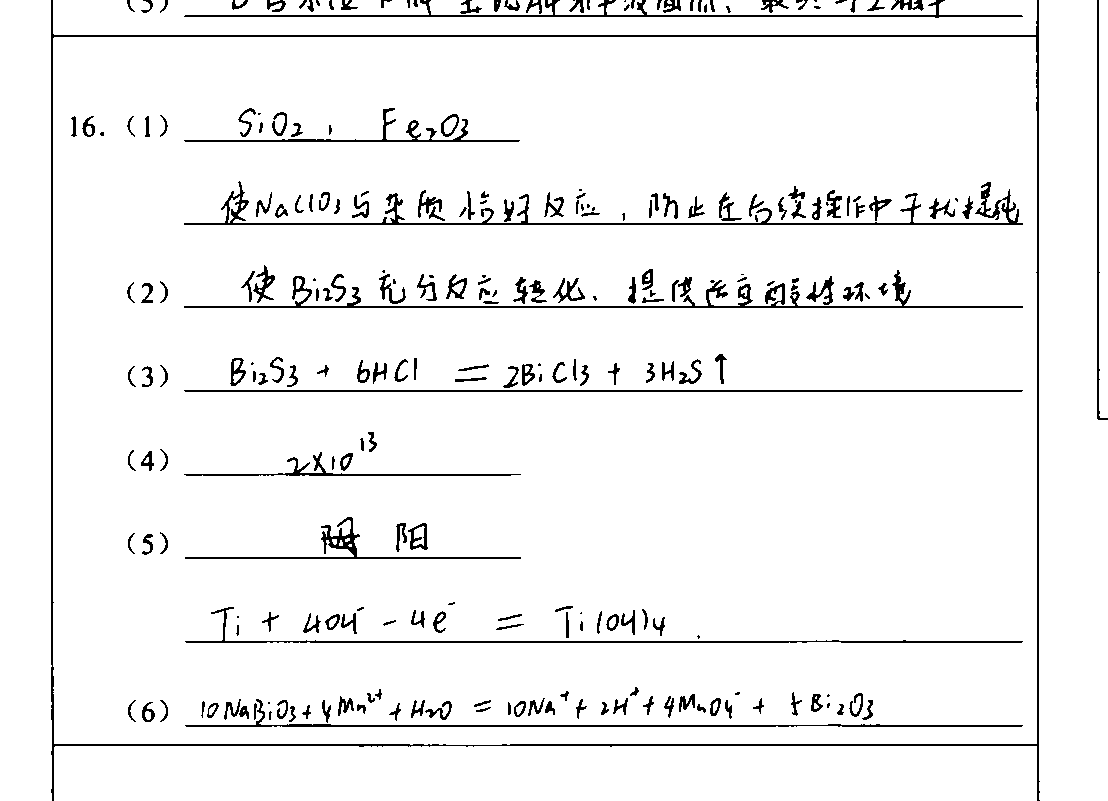 (5)
16. (1) SiO₂, Fe₂O₃
使NaClO₃与杂质恰好反应,防止在后续操作中干扰提纯
(2) 使Bi₂S₃充分反应转化、提供适宜酸性环境
(3) Bi₂S₃ + 6HCl = 2BiCl₃ + 3H₂S↑
(4) 2×10¹³
(5) 阳
Ti + 4OH⁻ - 4e⁻ = Ti(OH)₄.
(6) 10NaBiO₃ + 4Mn²⁺ + H₂O = 10Na⁺ + 2H⁺ + 4MnO₄⁻ + 5Bi₂O₃